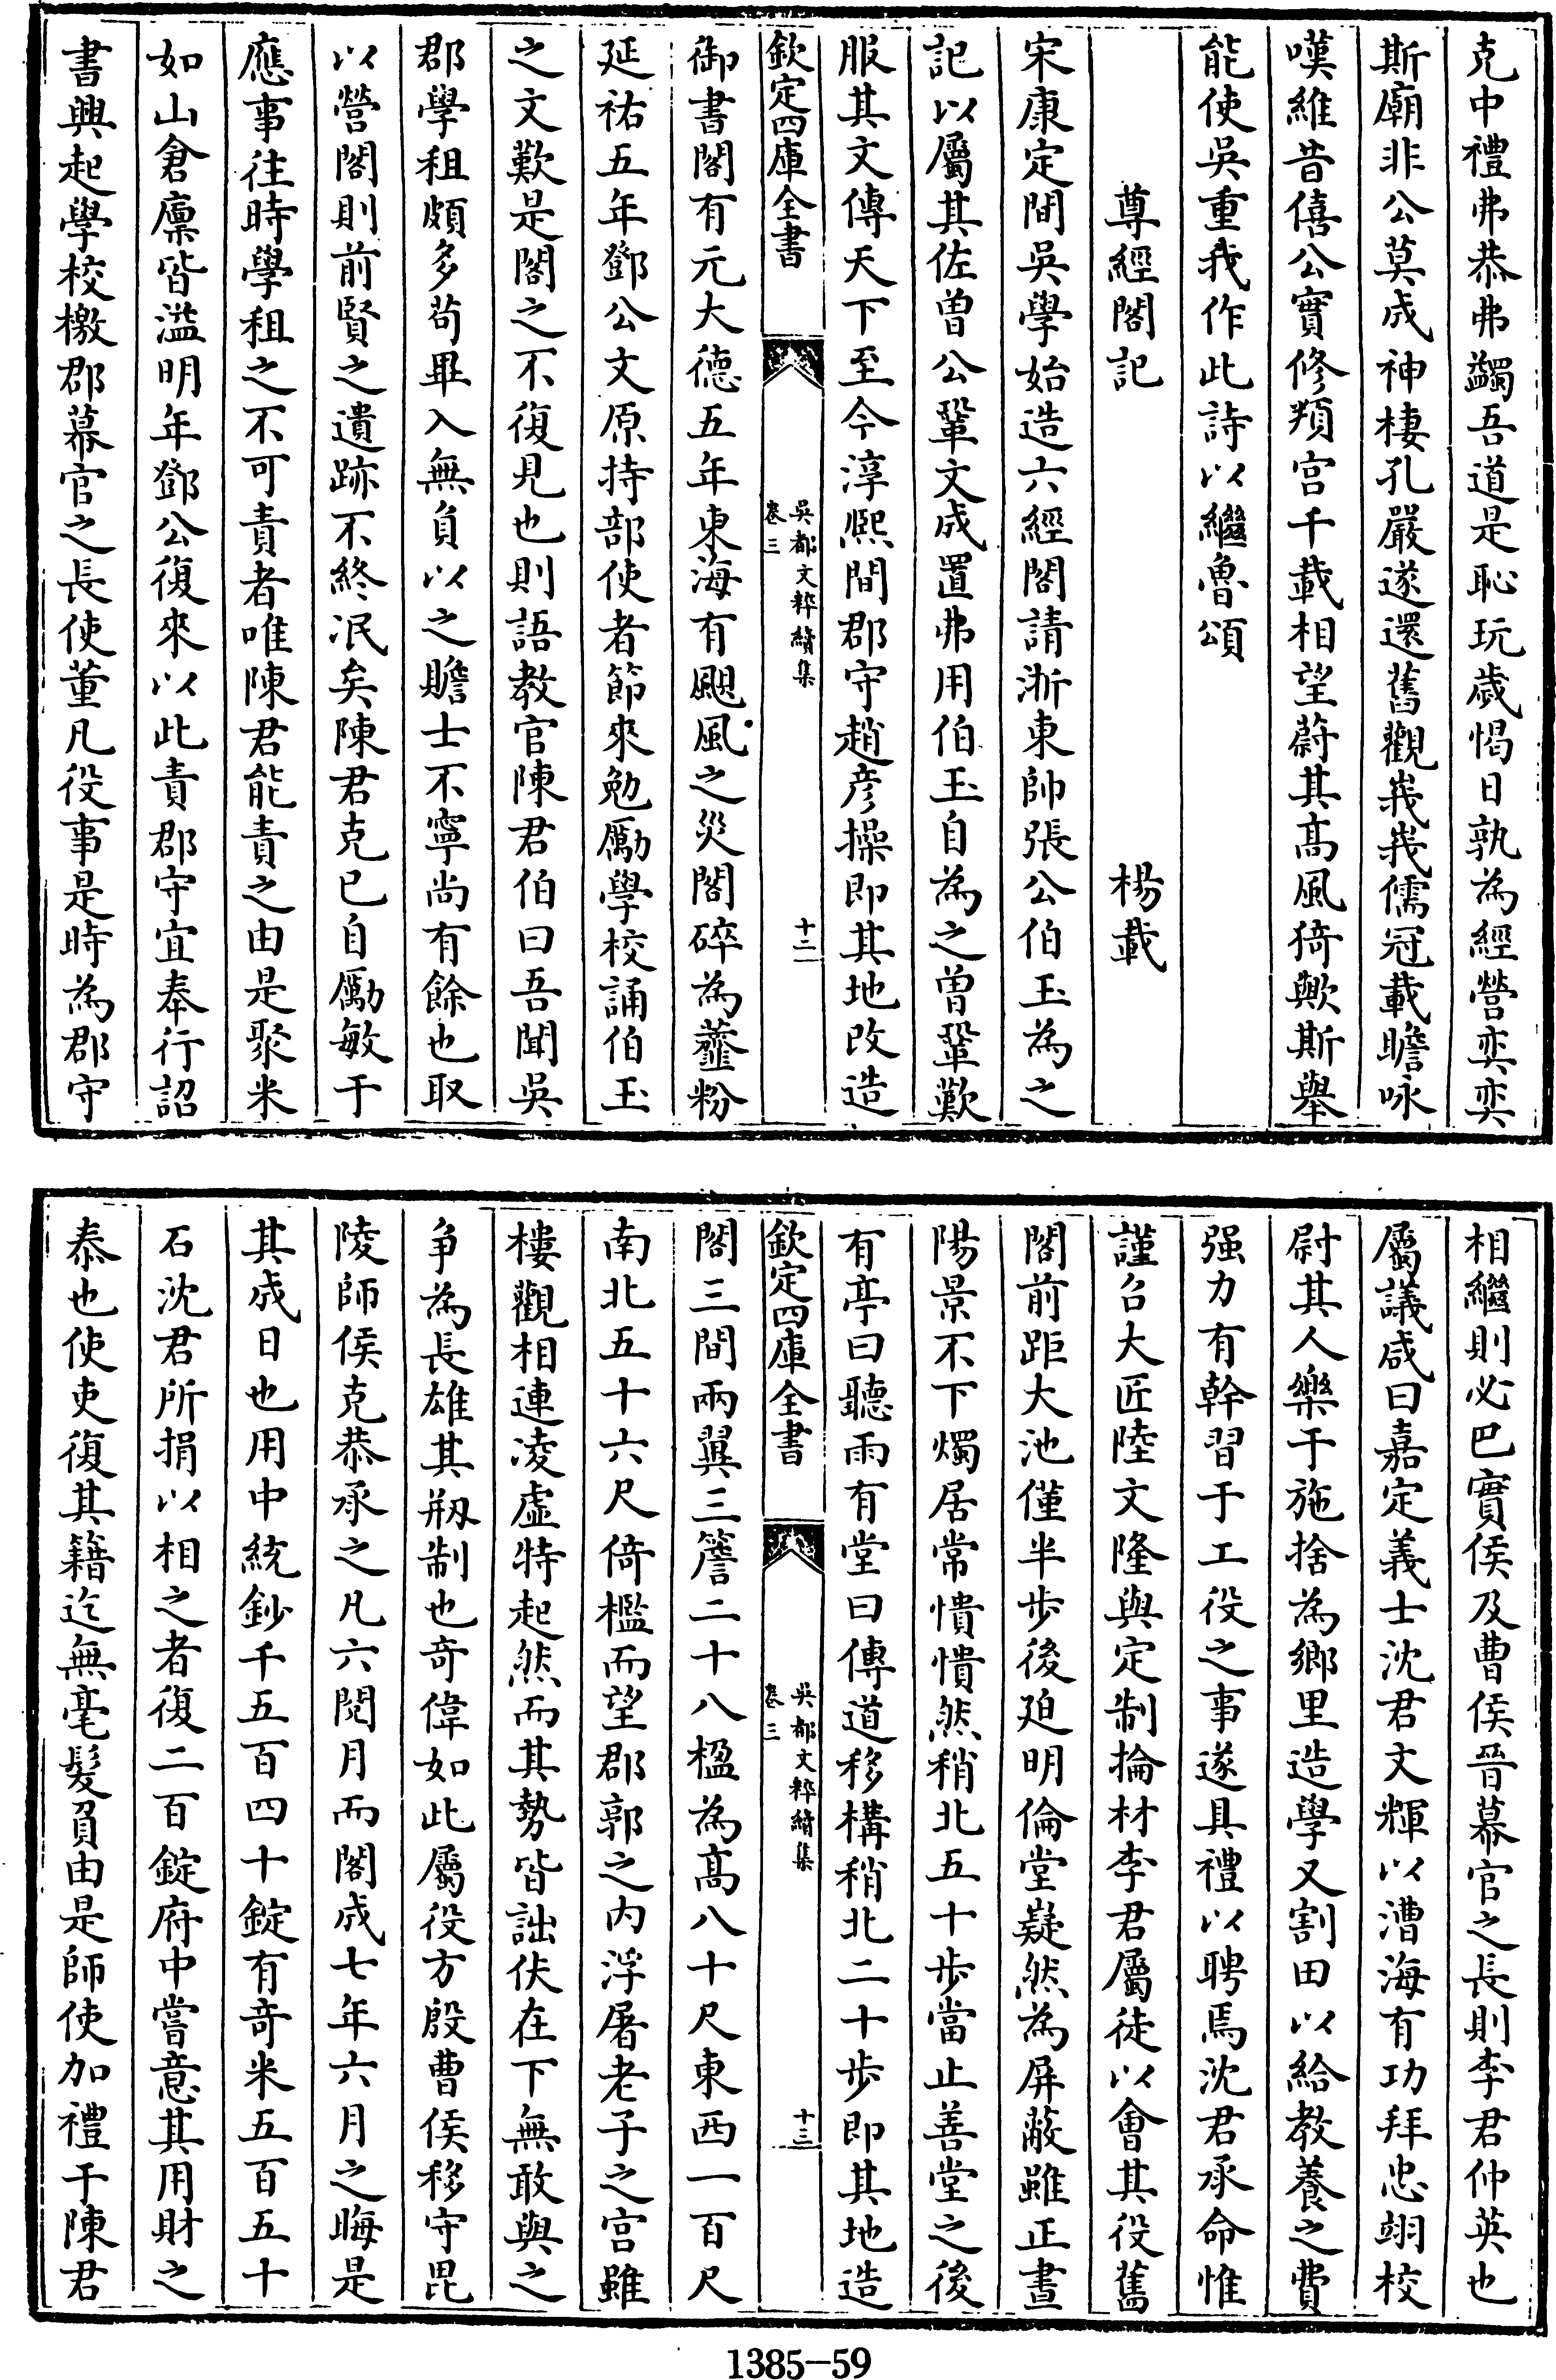 克中禮弗恭弗蠲吾道是恥玩歲愒日孰為經營奕奕
斯廟非公莫成神棲孔嚴遂還舊觀峩峩儒冠載瞻咏
嘆維昔僖公實修頖宫千載相望蔚其髙風猗歟斯舉
能使吳重我作此詩以繼魯頌
尊經閣記 楊載
宋康定間吳學始造六經閣請浙東帥張公伯玉為之
記以屬其佐曽公鞏文成置弗用伯玉自為之曽鞏歎
服其文傳天下至今淳熙間郡守趙彥操即其地改造
欽定四庫全書 吳都文粹續集 卷三 十二
御書閣有元大德五年東海有颶風之災閣碎為虀粉
延祐五年鄧公文原持部使者節來勉勵學校誦伯玉
之文歎是閣之不復見也則語教官陳君伯曰吾聞吳
郡學租頗多苟畢入無負以之贍士不寧尚有餘也取
以營閣則前賢之遺跡不終泯矣陳君克已自勵敏于
應事往時學租之不可責者唯陳君能責之由是聚米
如山倉廪皆溢明年鄧公復來以此責郡守宜奉行詔
書興起學校檄郡幕官之長使董凡役事是時為郡守
相繼則必巴實侯及曹侯晉幕官之長則李君仲英也
屬議咸曰嘉定義士沈君文輝以漕海有功拜忠翊校
尉其人樂于施捨為鄉里造學又割田以給教養之費
强力有幹習于工役之事遂具禮以聘焉沈君承命惟
謹召大匠陸文隆與定制掄材李君屬徒以會其役舊
閣前距大池僅半步後迫明倫堂嶷然為屏蔽雖正晝
陽景不下燭居常憒憒然稍北五十步當止善堂之後
有亭曰聽雨有堂曰傳道移構稍北二十步即其地造
欽定四庫全書 吳都文粹續集 卷三 十三
閣三間兩翼三簷二十八楹為髙八十尺東西一百尺
南北五十六尺倚檻而望郡郭之内浮屠老子之宫雖
樓觀相連凌虛特起然而其勢皆詘伏在下無敢與之
爭為長雄其刱制也奇偉如此屬役方殷曹侯移守毘
陵師侯克恭承之凡六閱月而閣成七年六月之晦是
其成日也用中統鈔千五百四十錠有奇米五百五十
石沈君所捐以相之者復二百錠府中嘗意其用財之
泰也使吏復其籍迄無毫髪負由是師使加禮于陳君
1385-59